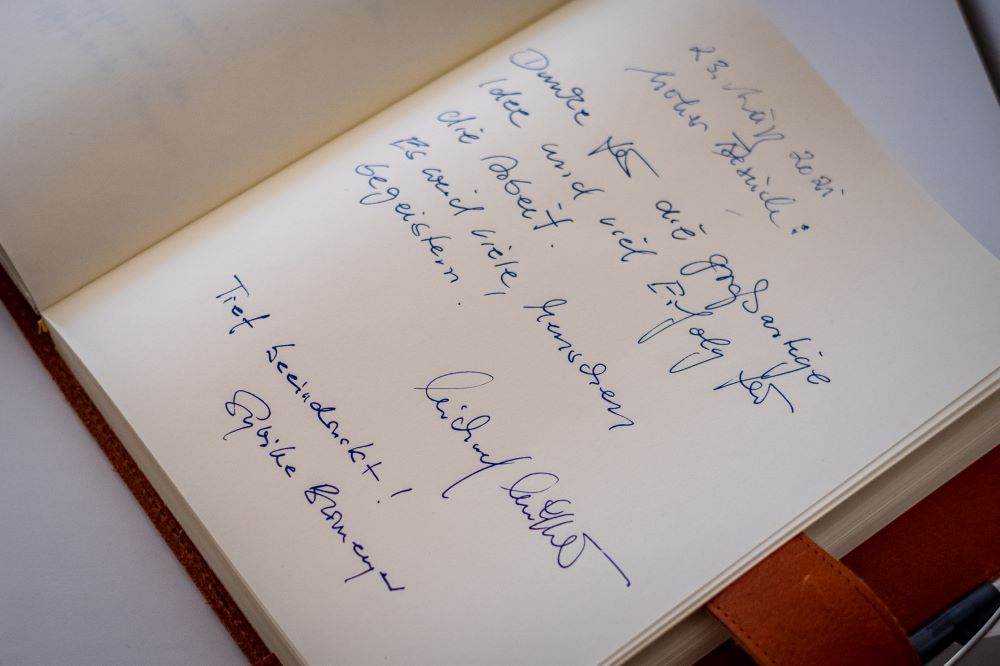 23. März 2021
Hoher Besuch:
Danke für die großartige
Idee und viel Erfolg für
die Arbeit.
Es wird viele, Menschen
begeistern.
Michael
Tief beeindruckt!